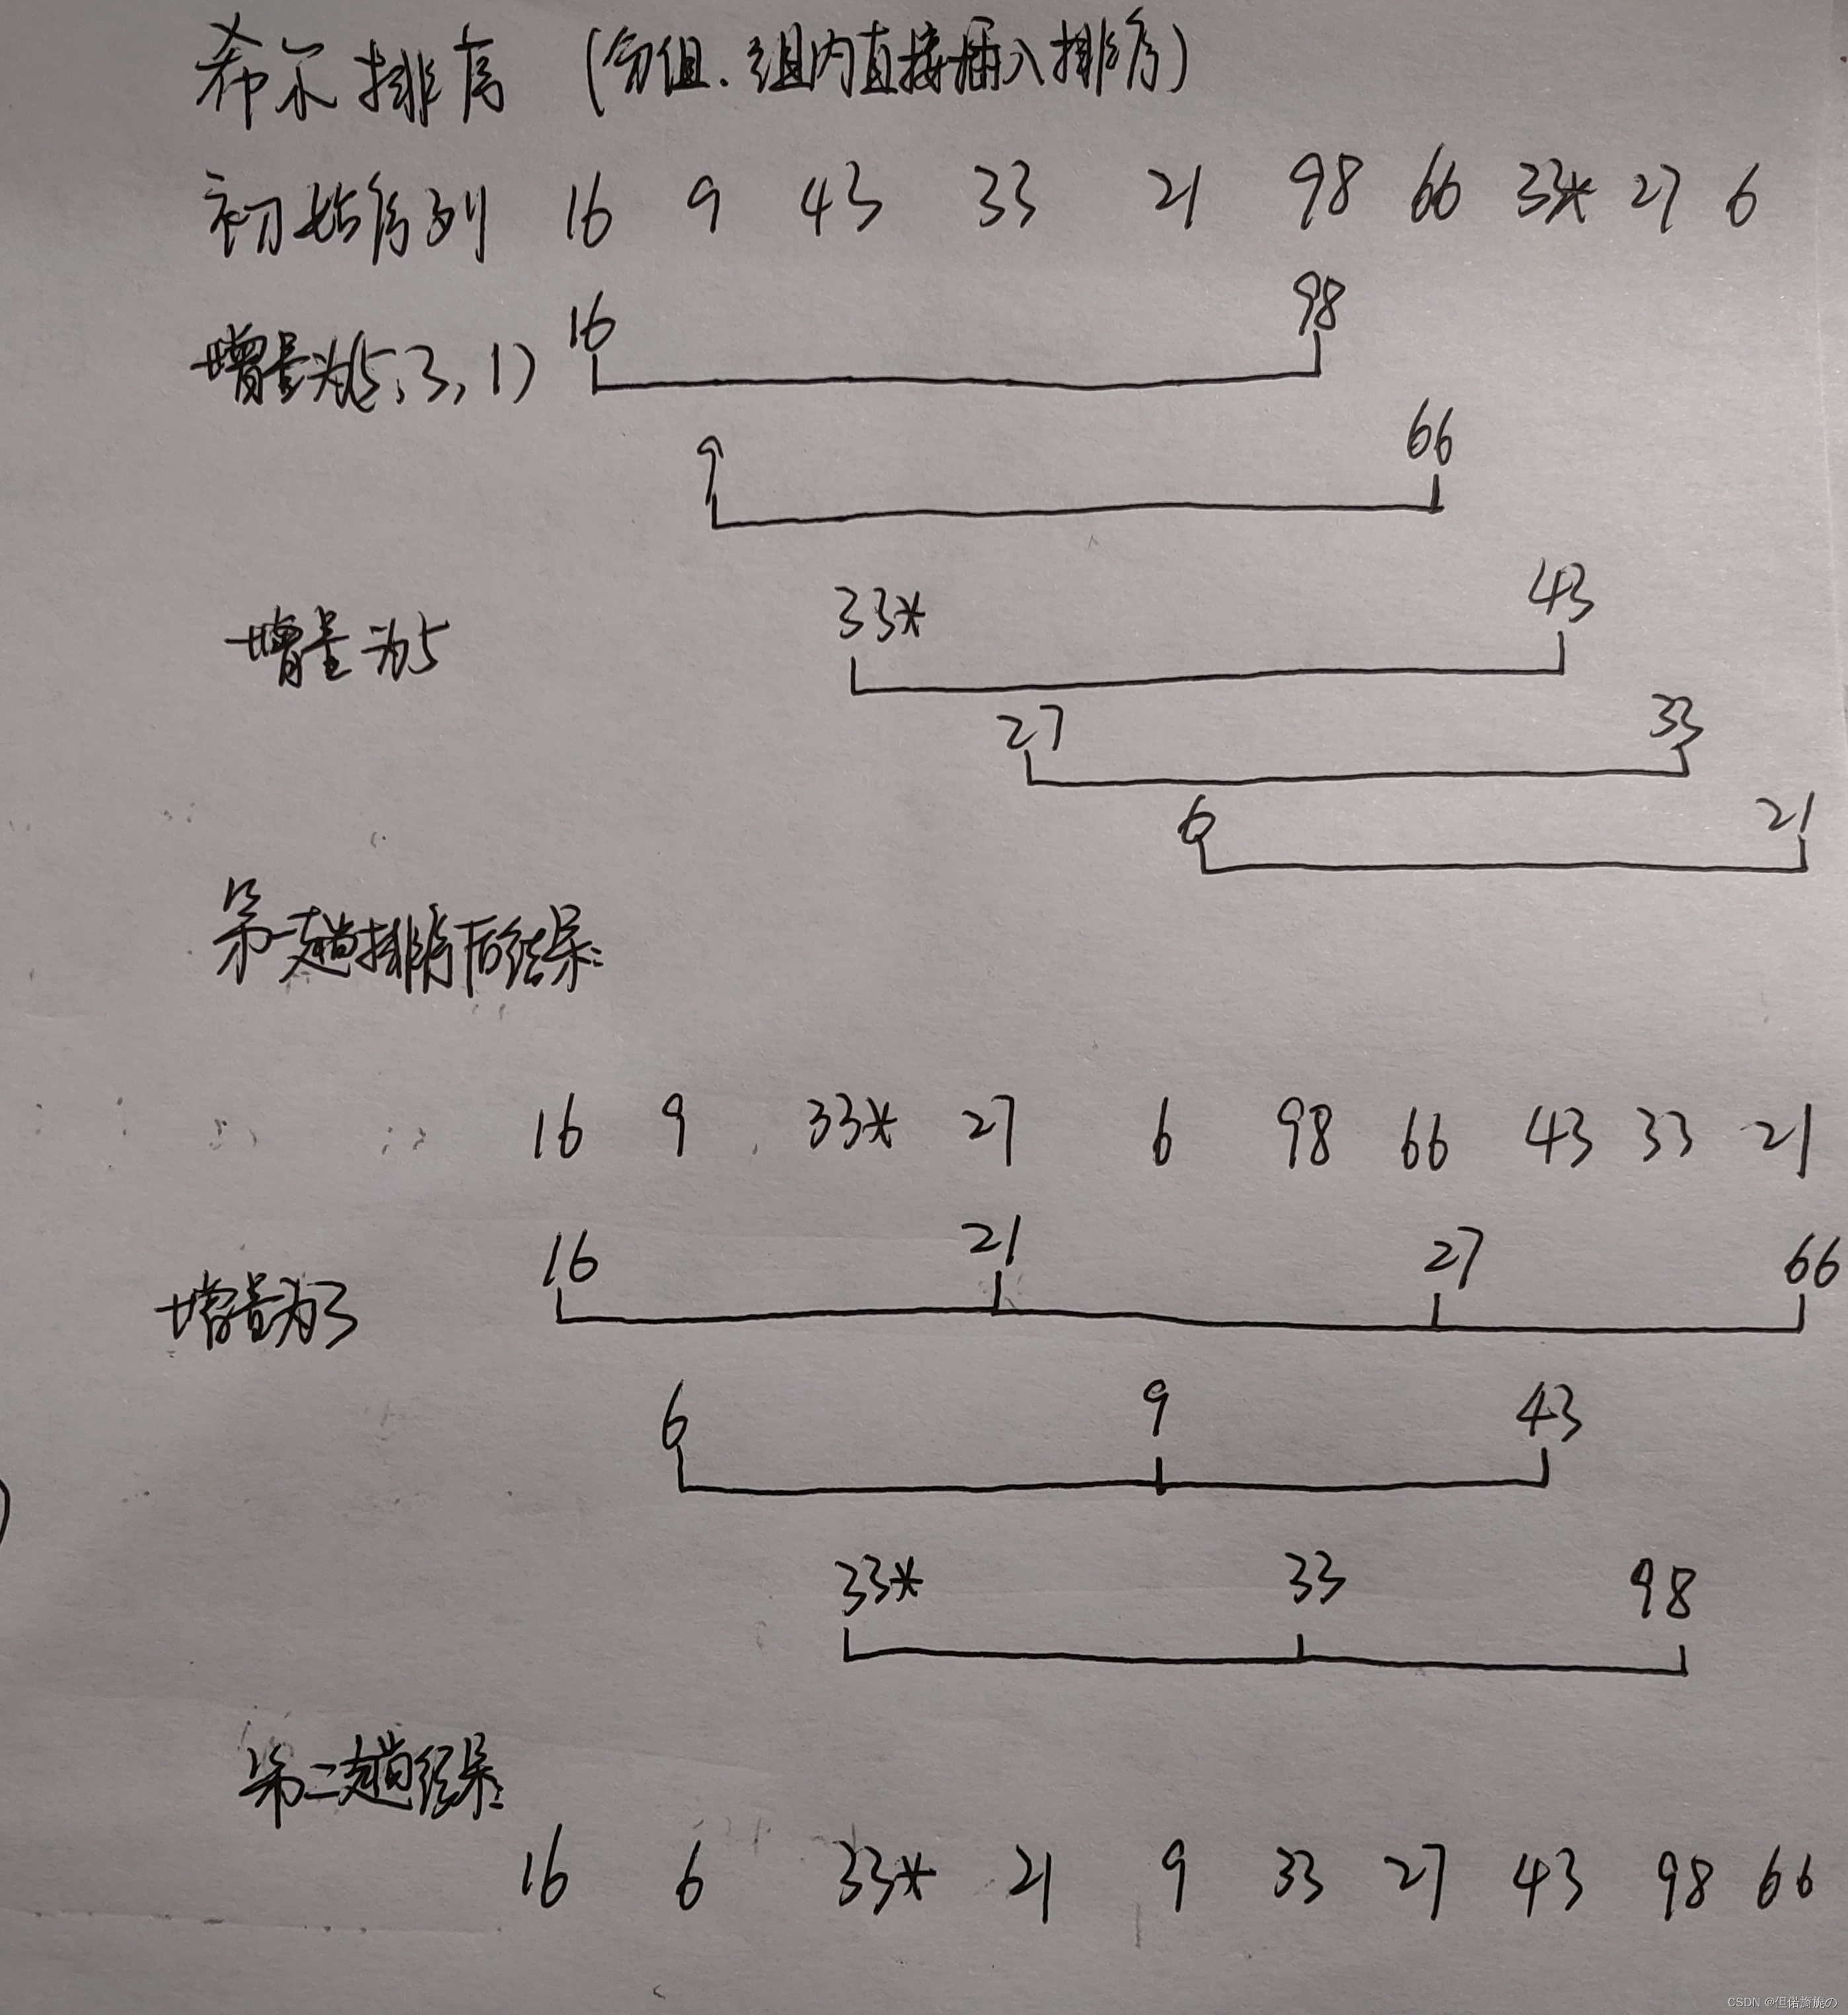 希尔排序 (分组.组内直接插入排序)
初始序列 16 9 43 33 21 98 66 33* 27 6
增量为(5,3,1) 16 98
9 66
增量为5 33* 43
27 33
6 21
第一趟排序后结果:
16 9 33* 27 6 98 66 43 33 21
增量为3 16 21 27 66
6 9 43
33* 33 98
第二趟结果:
16 6 33* 21 9 33 27 43 98 66
CSDN @但偌旖旎の